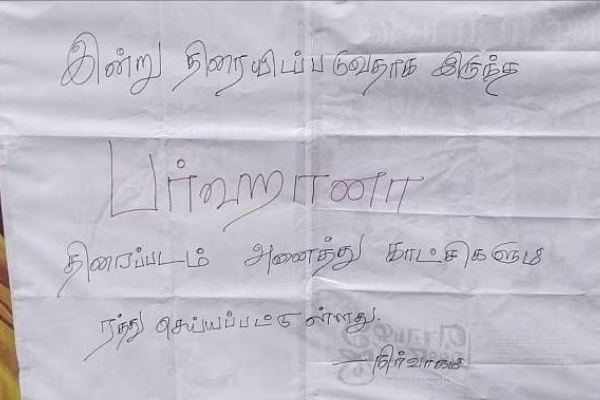 இன்று திரையிடப்படுவதாக இருந்த
பர்ஹானா
திரைப்படம் அனைத்து காட்சிகளும்
ரத்து செய்யப்பட்டுள்ளது.
— நிர்வாகம்